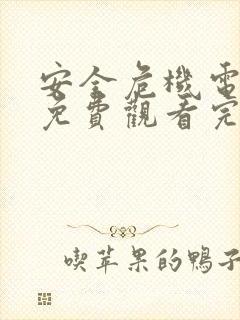 安全危機電
免費觀看完
喫苹果的鴨子